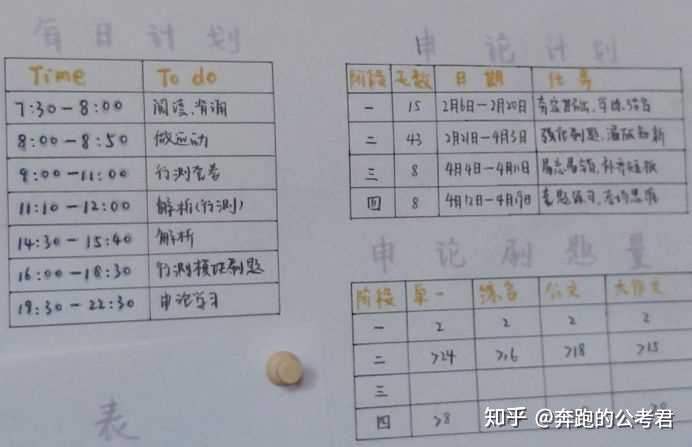 每日计划
Time To do
7:30-8:00 阅读、背诵
8:00-8:50 做运动
9:00-11:00 行测套卷
11:10-12:00 解析(行测)
14:30-15:40 解析
16:00-18:30 行测模块刷题
19:30-22:30 申论学习
表
申论计划
阶段 天数 日期 任务
一 15 2月6日-2月20日
二 43 2月21日-4月3日 强化刷题、温故知新
三 8 4月4日-4月11日 查漏补缺
四 8 4月12日-4月19日
申论刷题量
阶段 单一 综合 公文 大作文
一 2 2 2 2
二 >24 >16 >18 >15
三
四 >8
知乎 @奔跑的公考君